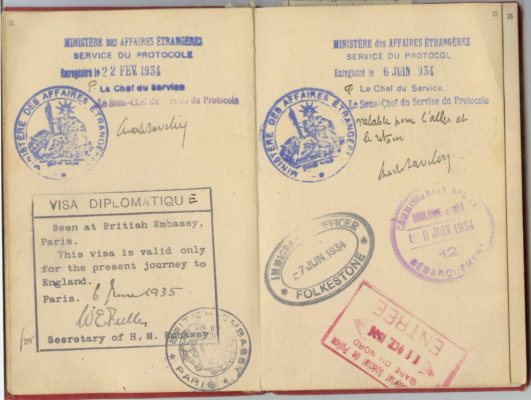 11
MINISTÈRE des AFFAIRES ÉTRANGÈRES
SERVICE DU PROTOCOLE
Enregistré le 22 FEV. 1934
P. Le Chef du Service
Le Sous-Chef du Service du Protocole
MINISTÈRE DES AFFAIRES ÉTRANGÈRES
VISA DIPLOMATIQUE
Seen at British Embassy,
Paris.
This visa is valid only
for the present journey to
England.
Paris. 6 June 1935
for
Secretary of H. M. Embassy
BRITISH EMBASSY
* PARIS *
12
16
MINISTÈRE des AFFAIRES ÉTRANGÈRES
SERVICE DU PROTOCOL
Enregistré le 6 JUIN 1934
P. Le Chef du Service.
Le Sous-Chef du Service du Protocole
MINISTÈRE DES AFFAIRES ÉTRANGÈRES
valable pour l'aller et
le retour
IMMIGRATION OFFICER
7 JUN 1934
* FOLKESTONE *
COMMISSARIAT
0 JUIN 1934
12
DÉBARQUEMENT
Spécial de Police
GARE DU NORD
OCT. 1936
ENTRÉE